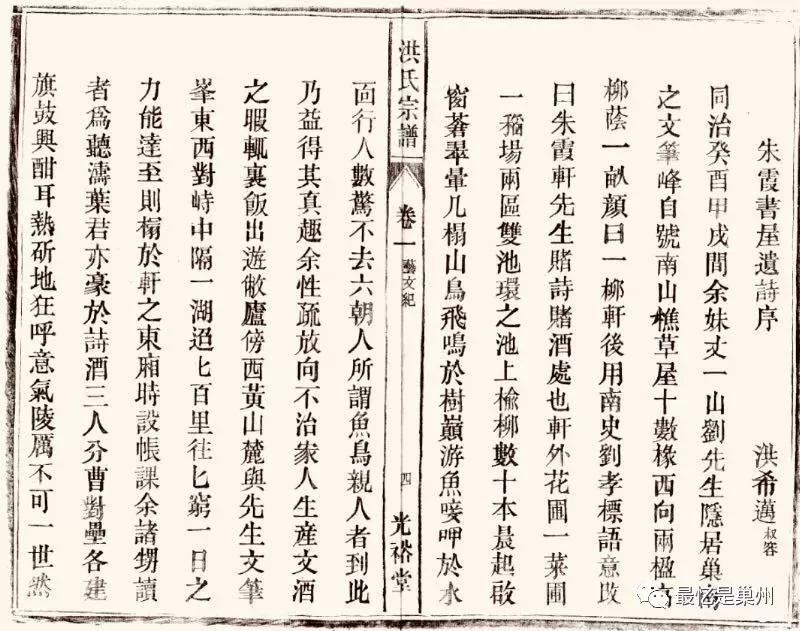 朱霞書屋遺詩序 洪希邁叔容
同治癸酉甲戌間余妹丈一山劉先生隱居巢湖
之文筆峰自號南山樵草屋十數椽西向兩楹
柳蔭一畝顏曰一柳軒後用南史劉孝標語意改
曰朱霞軒先生賭詩賭酒處也軒外花圃一菜圃
一稻場兩區雙池環之池上榆柳數十本晨起啟
窗蒼翠暈几榻山鳥飛鳴於樹巔游魚唼呷於水
洪氏宗譜 卷一 藝文紀 四 光裕堂
面行人數驚不去六朝人所謂魚鳥親人者到此
乃益得其真趣余性疏放向不治家人生産文酒
之暇輒裹飯出遊敝廬傍西黃山麓與先生文筆
峯東西對峙中隔一湖迢匕百里往匕窮一日之
力能達至則榻於軒之東廂時設帳課余諸甥讀
者爲聽濤葉君亦豪於詩酒三人分曹對壘各建
旗鼓興酣耳熱斫地狂呼意氣陵厲不可一世然
最忆是巢州